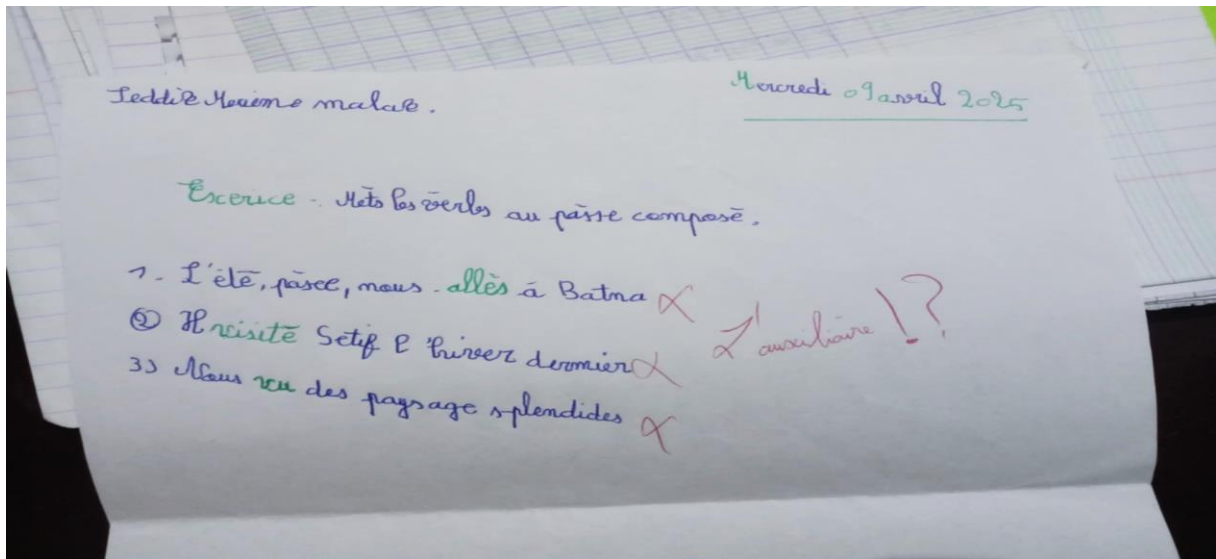 Seddik Merieme malak.
Mercredi 09 avril 2025
Excerice - Mets les verbs au pàsse composé.
1- L'été, pàsee, nous - allès à Batna
② Il visité Setif l'hiver dernier
3) Nous vu des paysage splendides
L'auxiliaire !?